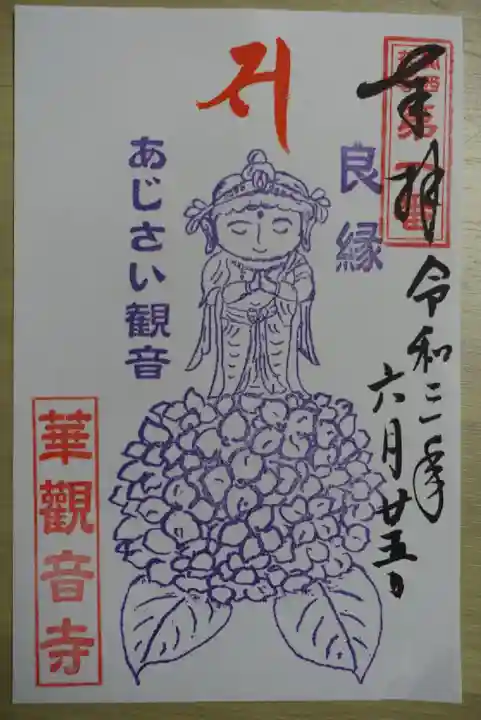 奉拝
令和三年
六月廿五日
良縁
あじさい観音
華觀音寺